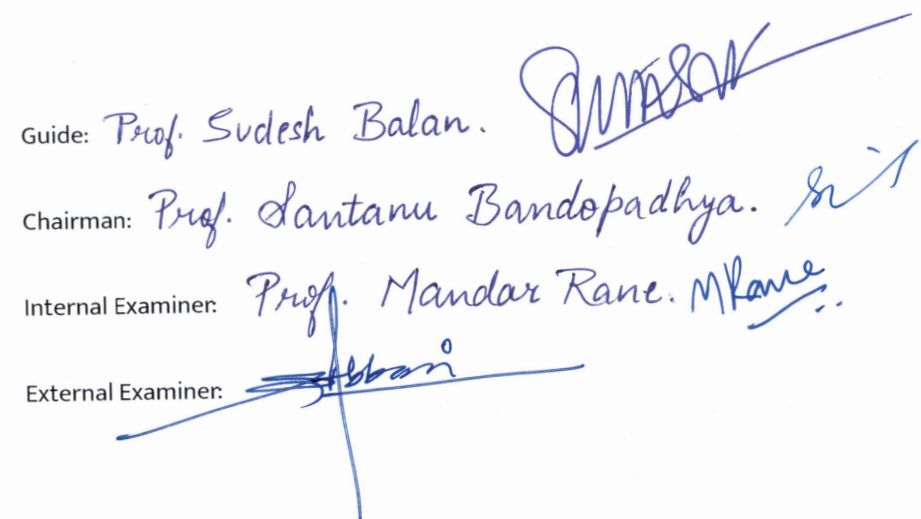 Guide: Prof. Sudesh Balan.
Chairman: Prof. Santanu Bandopadhya.
Internal Examiner: Prof. Mandar Rane. MRane
External Examiner: